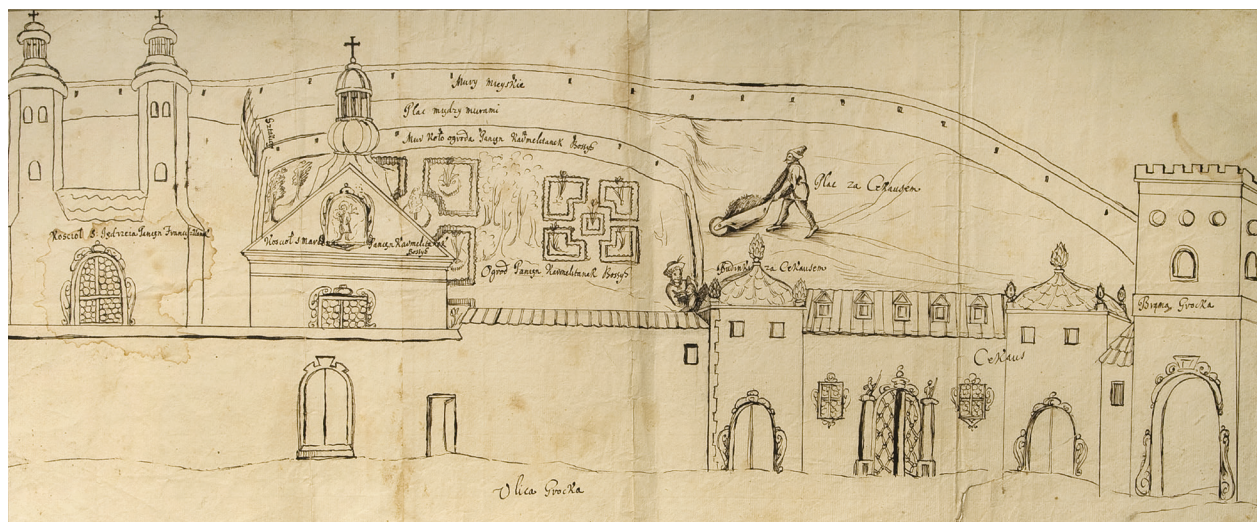 Mury mieyskie
Plac między murami
Mur koło ogroda Panien Karmelitanek Bossyh
Plac za Cekausem
Kosciół S Jędrzeia Panien Franciszkanek
Kosciół S Mar
Panien Karmelitanek
Bossyh
Ogrod Panien Karmelitanek Bossyh
Budink za Cekausem
Brama Grocka
Cekaus
Vlica Grocka